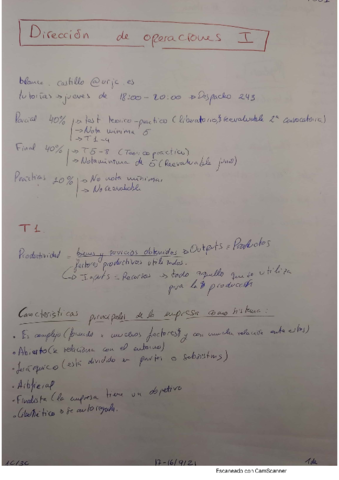 Dirección de operaciones I
tutorías → jueves de 18:00 - 20:00 → Despacho 243
Parcial 40% → test teorico-practico (liberatorio) Reevaluable 2ª convocatoria)
→ Nota mínima 5
→ T 1-4
Final 40% → T 5-8 (Teorico practica)
→ Nota mínima de 5 (Reevaluable junio)
Practicas 20% → No nota mínima
→ No revaluable
T1
Productividad = bienes y servicios obtenidos → Outputs = Productos
factores productivos utilizados
→ Inputs = Recursos → todo aquello que se utiliza
para la producción
Características principales de la empresa como sistema:
• Es complejo (formado por numerosos factores) y con mucha relación entre ellos)
• Abierto (se relaciona con el entorno)
• Jerárquico (está dividido en partes o subsistemas)
• Artificial
• Finalista (la empresa tiene un objetivo
• Cibernético → se autorregula.
Escaneado con CamScanner